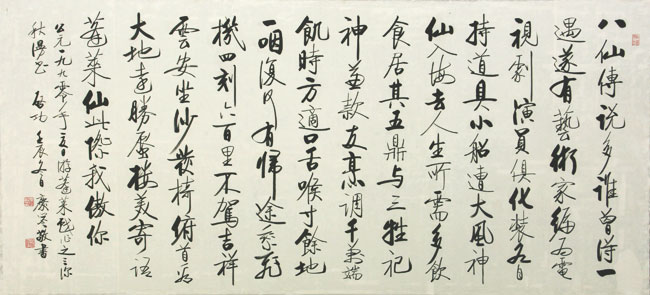 八仙傳說多誰曾得一
遇遂有藝術家編為電
視劇演員俱化裝各自
持道具小船遭大風神
仙入海去人生所需多飲
食居其五鼎与三牲祀
神兼款友烹調千萬端
飢時方適口舌喉寸餘地
一咽復何有歸途乘飛
機四刻六百里不駕吉祥
雲安坐沙發椅俯首看
大地遠勝蜃樓美寄語
蓬萊仙此際我傲你
公元一九九零年夏日游蓬萊
啓功 壬辰冬日 敬書